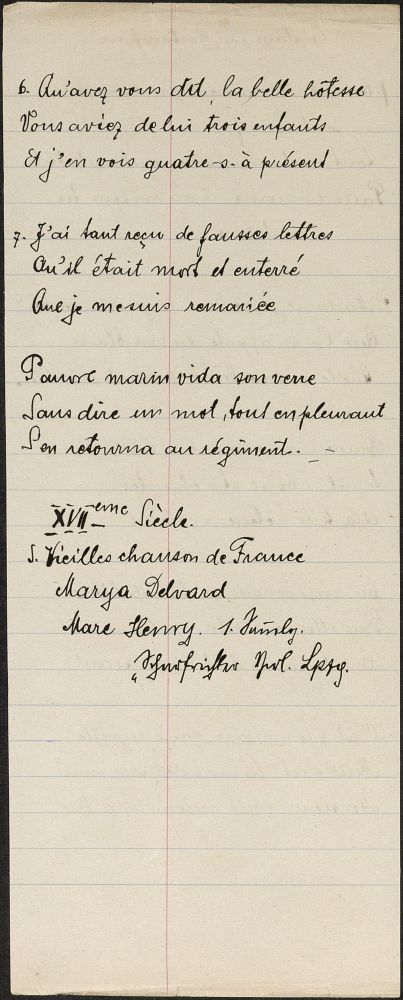 6. Qu'avez vous dit, la belle hôtesse
Vous aviez de lui trois enfants
Et j'en vois quatre-s-à présent
7. J'ai tant reçu de fausses lettres
Qu'il était mort et enterré
Que je me suis remariée
Pauvre marin vida son verre
Sans dire un mot, tout en pleurant
S'en retourna au régiment. _ -
XVII eme Siècle.
S. Vieilles chanson de France
Marya Delvard
Marc Henry. 1. Samlg.
"Scharfrichter Vrl. Lpzg.